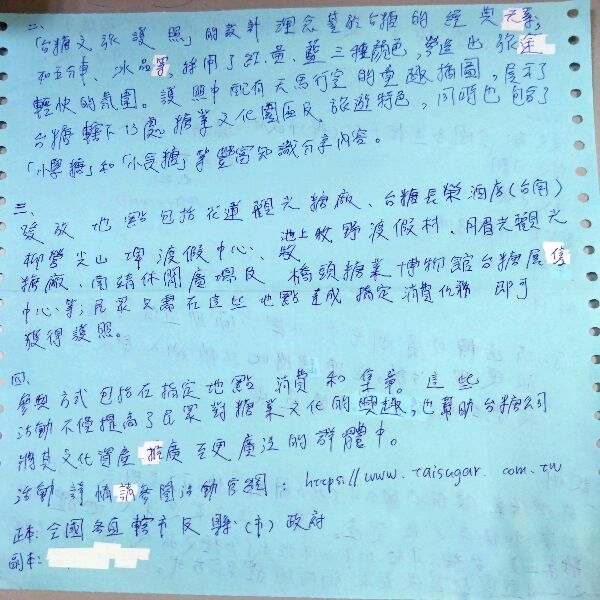 二、
「台糖文旅護照」的設計理念基於台糖的經典元素,
和五分車、冰品等,採用了紅、黃、藍三種顏色,營造出旅途
輕快的氛圍。護照中配有天馬行空的童趣插圖,展示了
台糖轄下13處糖業文化園區及旅遊特色,同時也包含了
「小學糖」和「小食糖」等豐富知識分享內容。
三、
發放地點包括花蓮觀光糖廠、台糖長榮酒店(台南)
柳營尖山埤渡假中心、池上牧野渡假村、月眉觀光
糖廠、南靖休閒廣場及橋頭糖業博物館台糖展售
中心等;民眾只需在這些地點達成指定消費任務即可
獲得護照。
四、
參與方式包括在指定地點消費和集章。這些
活動不僅提高了民眾對糖業文化的興趣,也幫助台糖公司
將其文化資產推廣至更廣泛的群體中。
活動詳情請參閱活動官網:https://www.taisugar.com.tw
正本:全國各直轄市及縣(市)政府
副本: